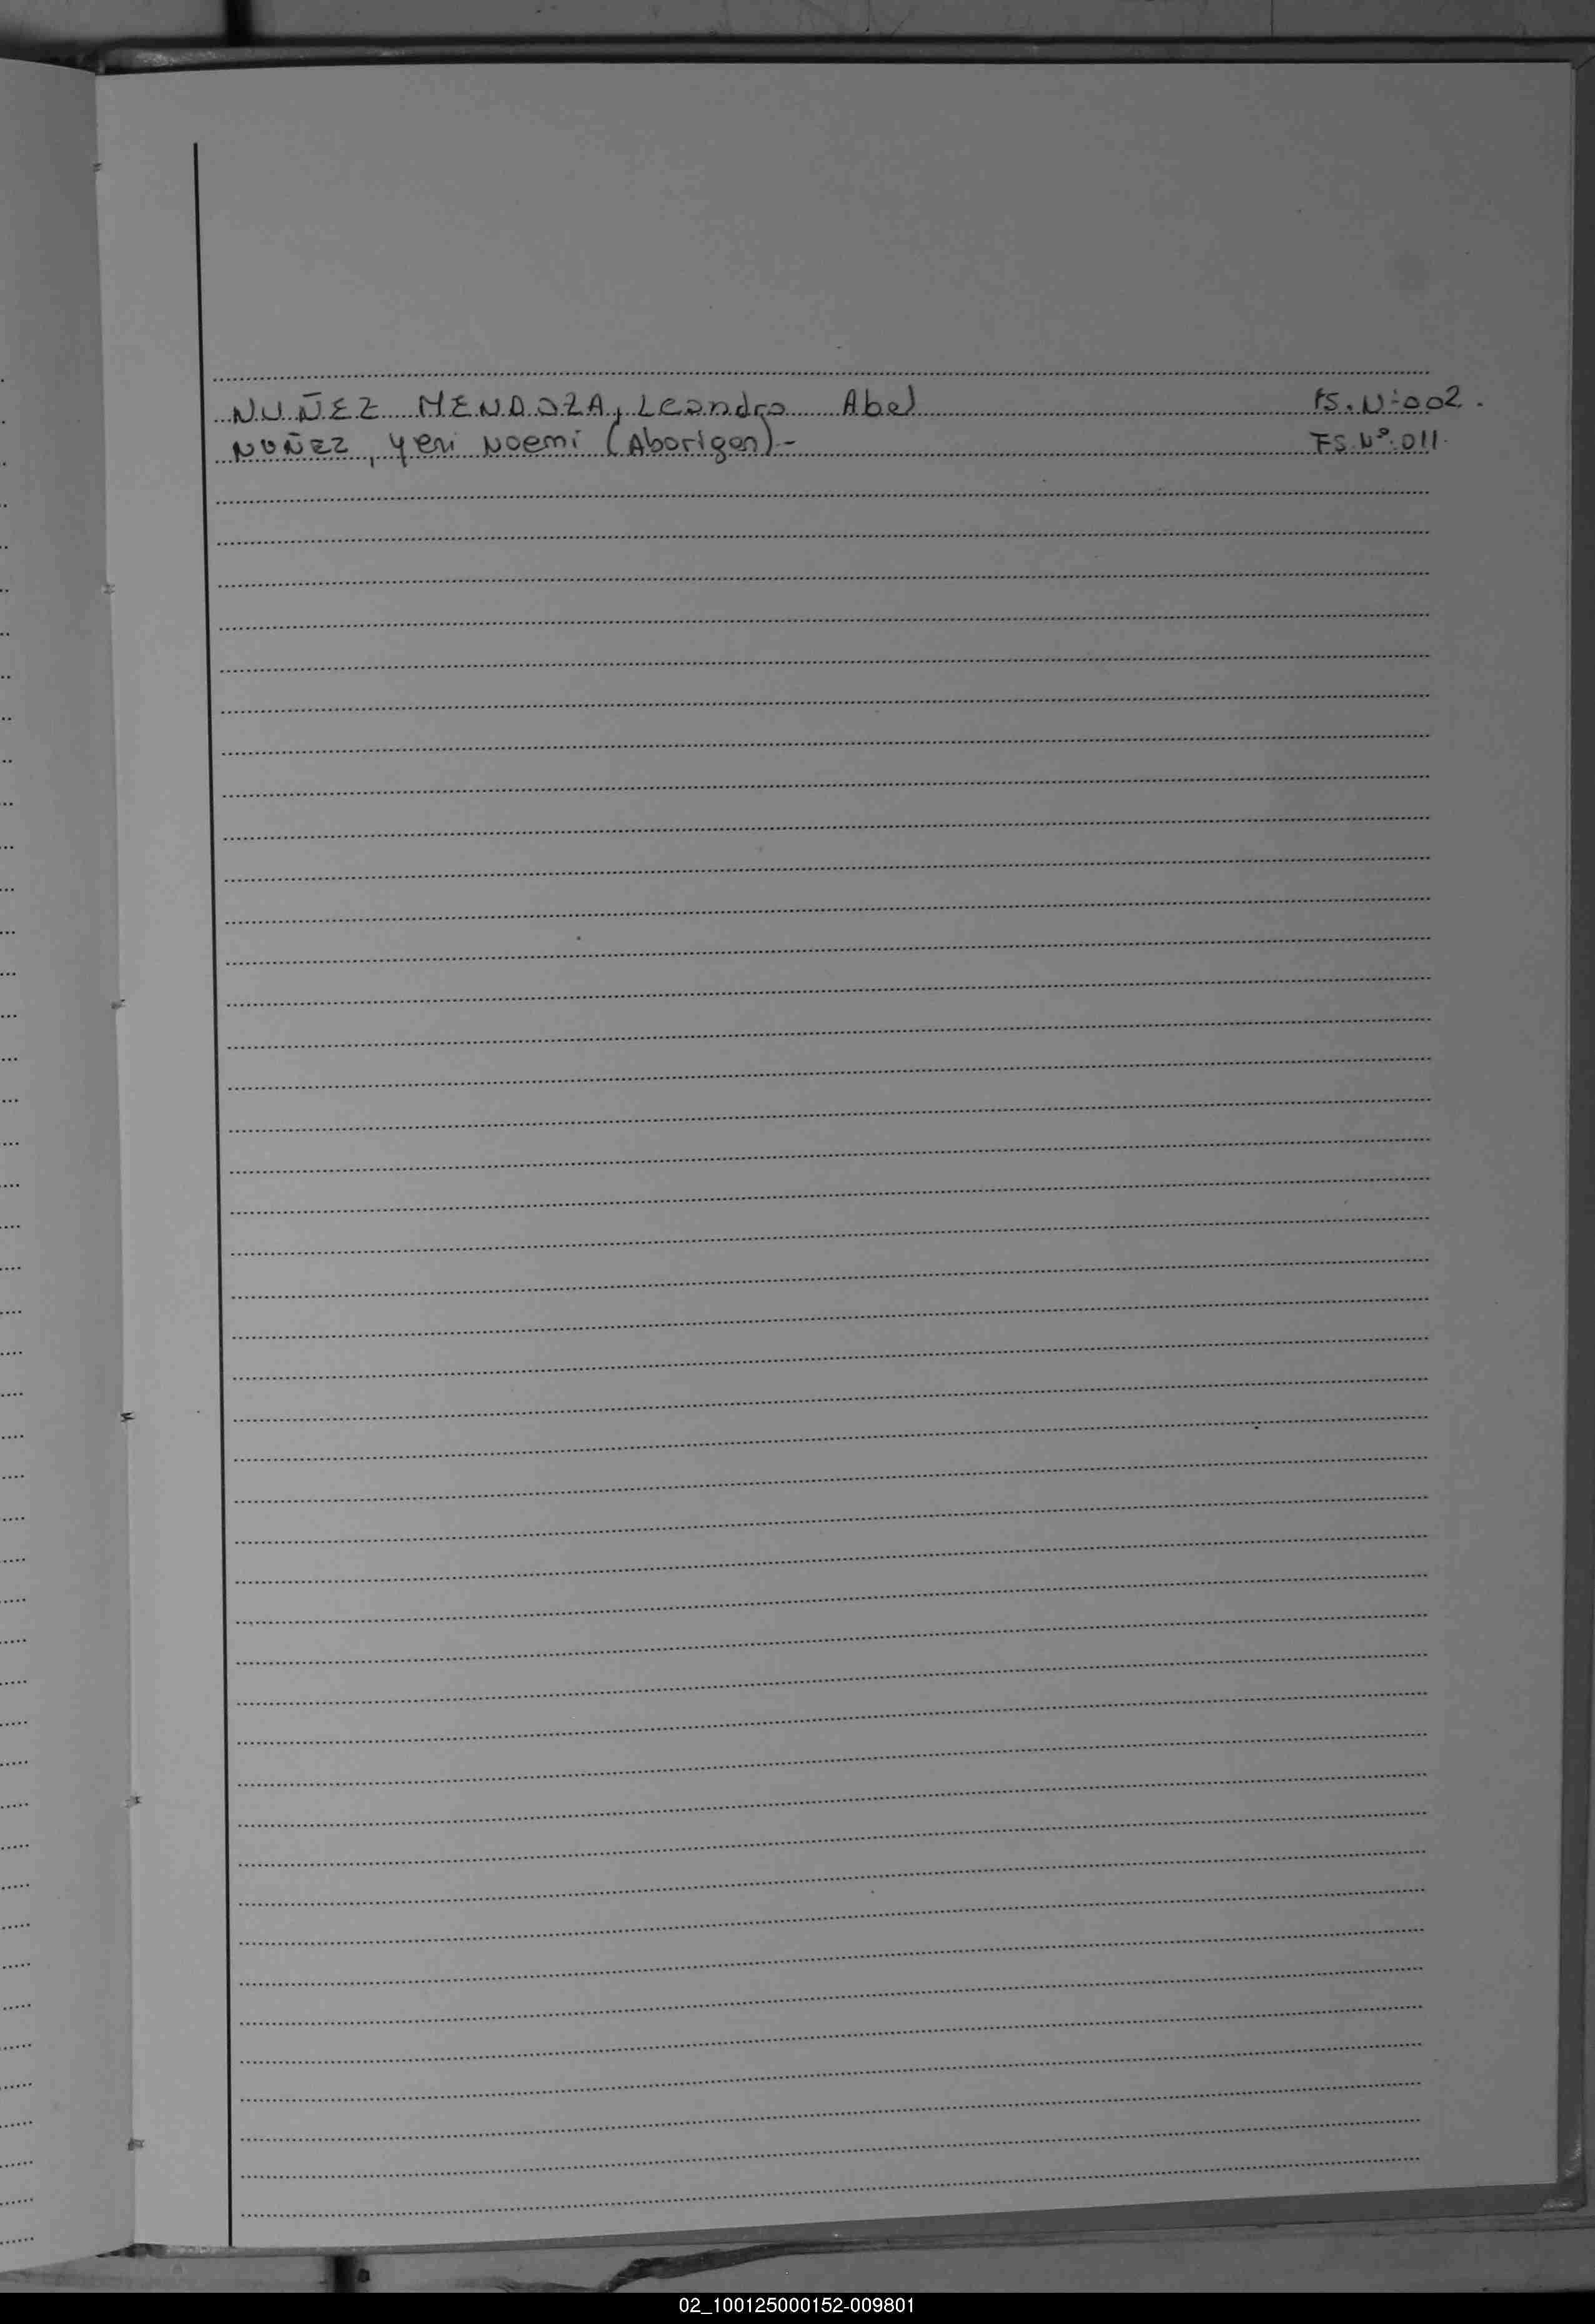 NUÑEZ MENDOZA, Leandro Abel FS. Nº:002.
NUÑEZ, Yeni Noemi (Aborigen).- FS. Nº:011.
02_100125000152-009801